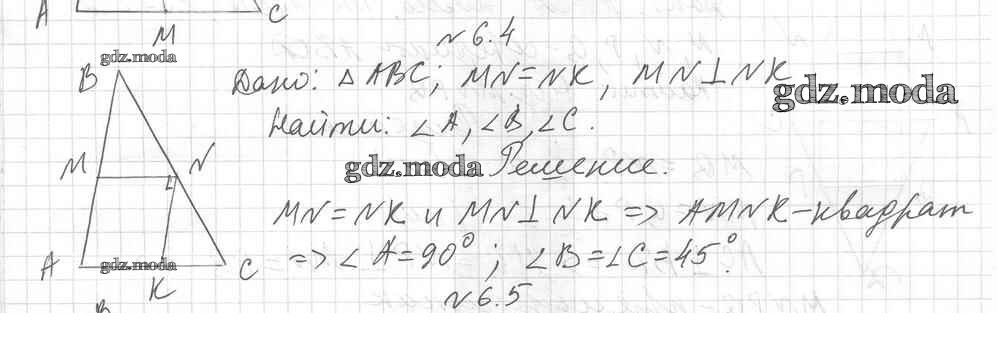 A C
M
№ 6.4
gdz.moda
B Дано: △ABC; MN=NK, MN⊥NK
gdz.moda
Найти: ∠A, ∠B, ∠C.
M N gdz.moda Решение.
MN=NK и MN⊥NK => AMNK-квадрат
A gdz.moda C => ∠A=90°; ∠B=∠C=45°.
K № 6.5
B